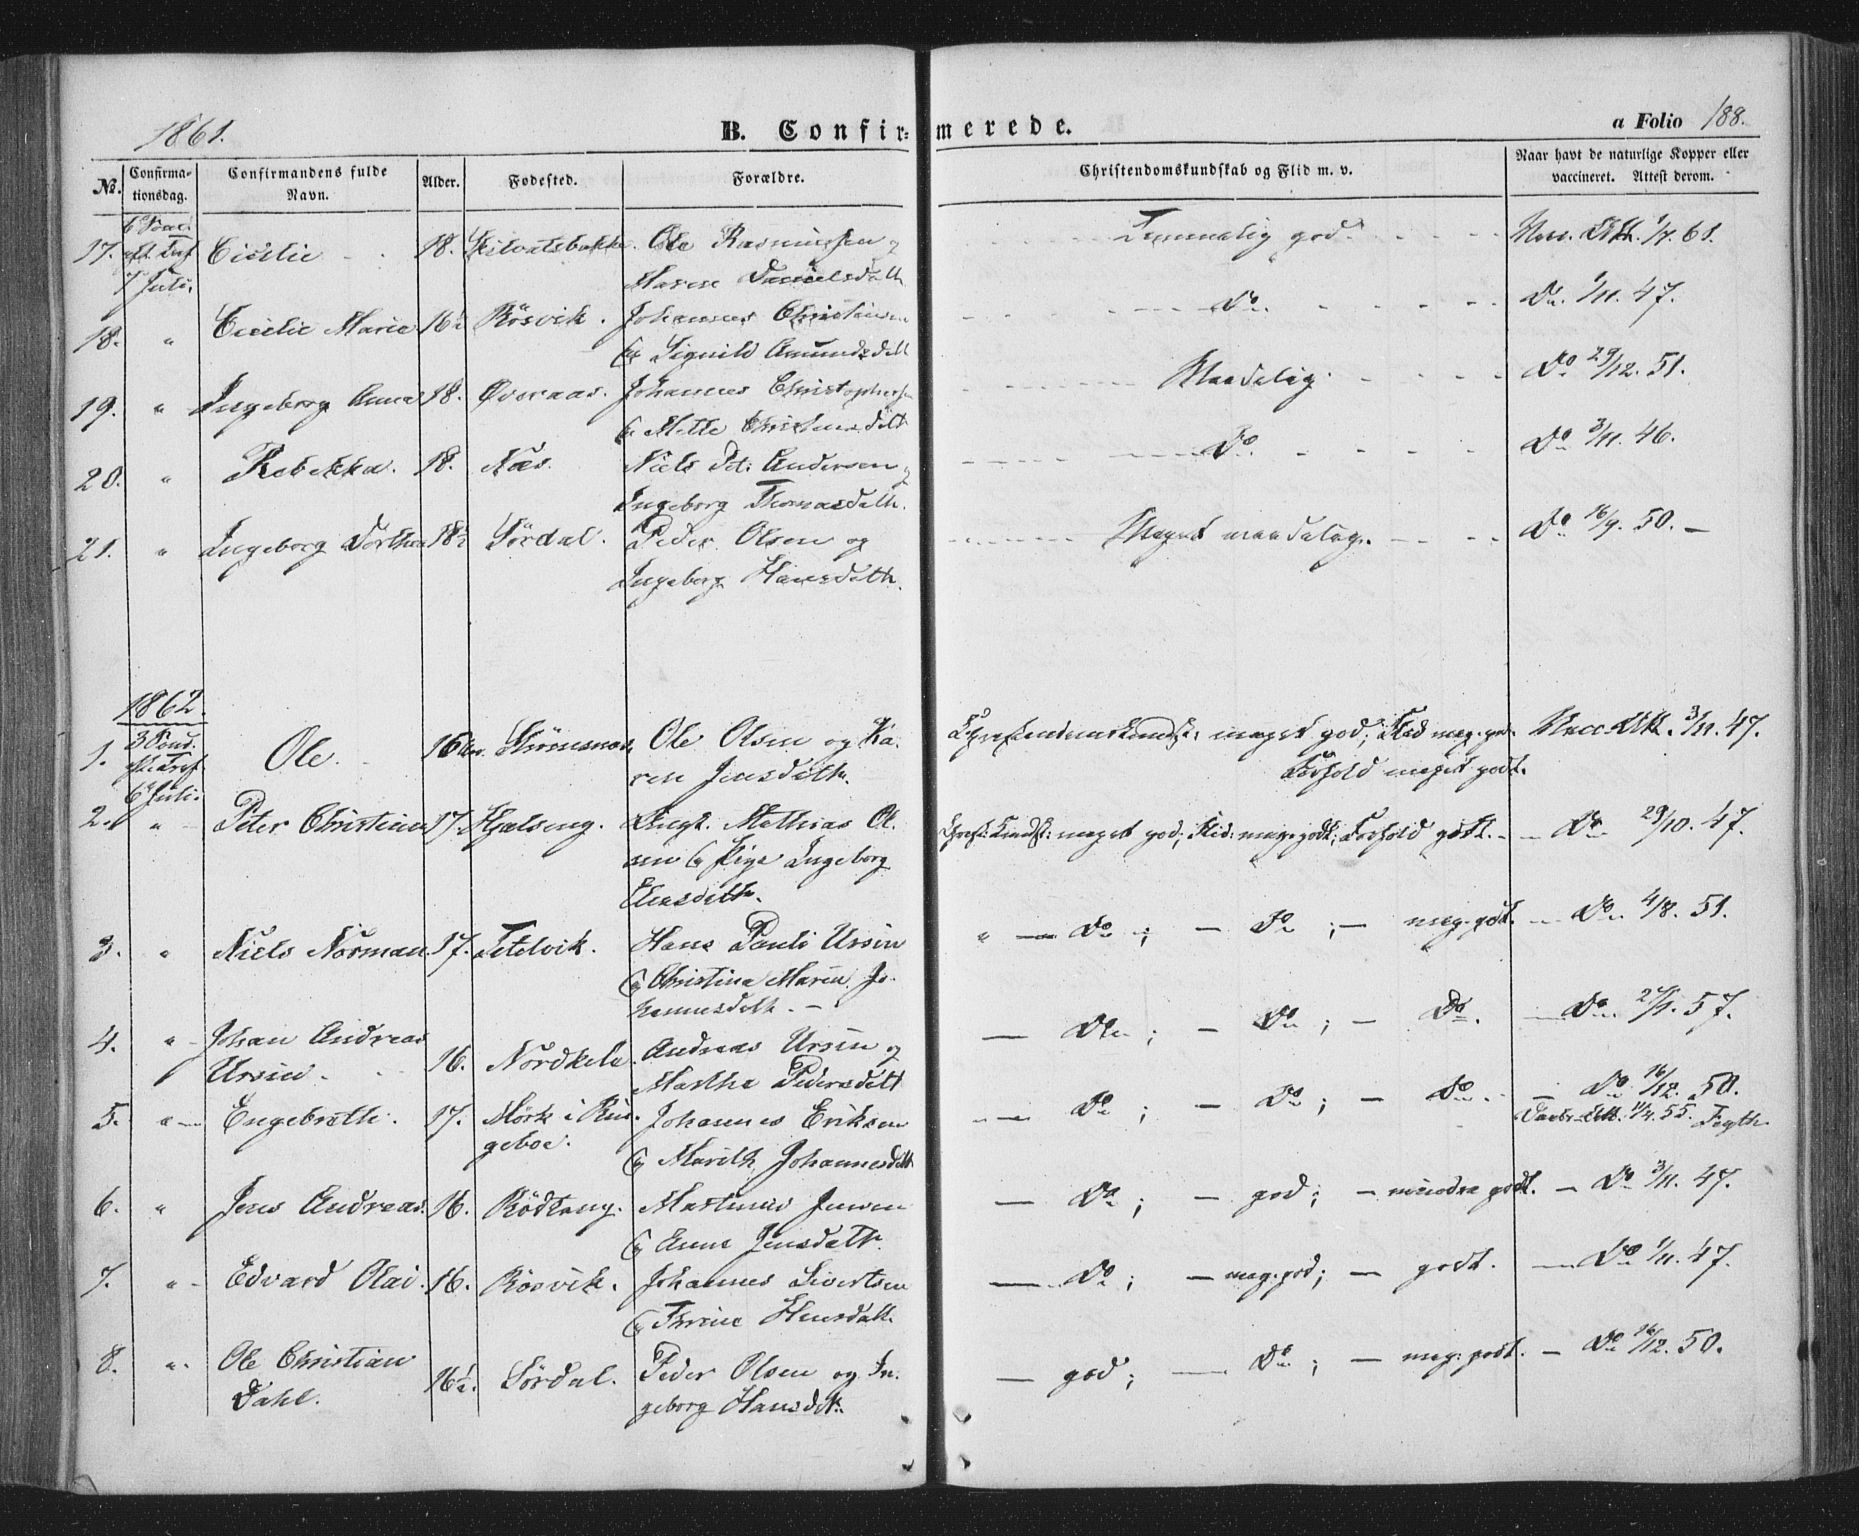 1861.
B. Confirmerede.
a Folio 188.
No. Confirmationsdag. Confirmandens fulde Navn. Alder. Fødested. Forældre. Christendomskundskab og Flid m. v. Naar havt de naturlige Kopper eller vaccineret. Attest derom.
17. 7 Juli. Cicilie 18. Ole Rasmussen og Maren Danielsdatt Temmelig god. Vacc. Att. 61.
18. " Cicilie Marie 16½ Rösvik. Johannes Christensen og Signild Amundsdatt Do. Do. 1/11. 47.
19. " Ingeborg Anna 18. Øveraas. Johannes Christophersen og Mette Christensdatt Maadelig. Do 29/12. 51.
20. " Rebekka. 18. Næs. Niels Pet. Andersen og Ingeborg Thomasdatt. Do. Do 3/11. 46.
21. " Ingeborg Dorthea 18½ Sördal. Peder Olsen og Ingeborg Hansdatt. Meget maadelig. Do 16/9. 50. —
1862.
1. 3 Sønd. eft. Tref. 6 Juli. Ole. 16 Strømsnæs. Ole Olsen og Karen Jensdatt. meget god; Flid meg. god. Forhold meget godt. Vacc. Att. 3/11. 47.
2. " Peter Christian 17. Hjelseng. Ungk. Mathias Olsen og Pige Ingeborg Elensdatt. Christ. Kundsk. meget god; Flid meg. god; Forhold godt. Do 29/10. 47.
3. " Niels Norman. 17. Tetelvik. Hans Pauli Ursin og Christina Maria Johannesdatt. — " — Do; — Do; — meg. godt. — Do. 4/8. 51.
4. " Johan Andreas Ursin. 16. Andreas Ursin og Martha Pedersdatt — Do; — Do; — Do. — Do. 57.
5. " Engebreth. 17. Mörk i Johannes Eriksen og Marith Johannesdatt — Do; — Do; — Do. — Do 16/12. 50. Att. 55.
6. " Jens Andreas. 16. Rödtang. Martinus Jensen og Anne Jensdatt. — Do; — god; — mindre godt. — Do 3/11. 47.
7. " Edvard Olai. 16. Rösvik. Johannes Sivertsen og Trine Hansdatt. — Do; — meg. god; — godt. — Do 1/11. 47.
8. " Ole Christian Dahl. 16½. Sördal. Peder Olsen og Ingeborg Hansdatt. — god; — Do; — meg. godt. — Do 16/12. 50.